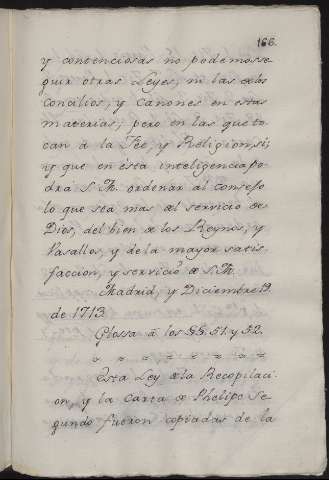 166.
y contenciosas no podemos se
guir otras Leyes, ni las de los
Concilios, y Canones en estas
materias; pero en las que to
can à la Feè, y Religion, si;
y que en ésta inteligencia po
drà S. M. ordenar al consejo
lo que sea mas del servicio de
Dios, del bien de los Reynos, y
Vasallos, y de la mayor satis
faccion, y servicio de S. M.
Madrid, y Diciembre 19.
de 1713.
Glossa à los §§. 51. y 52.
Esta Ley de la Recopilaci
on, y la Carta de Phelipo Se
gundo fueron copiadas de la